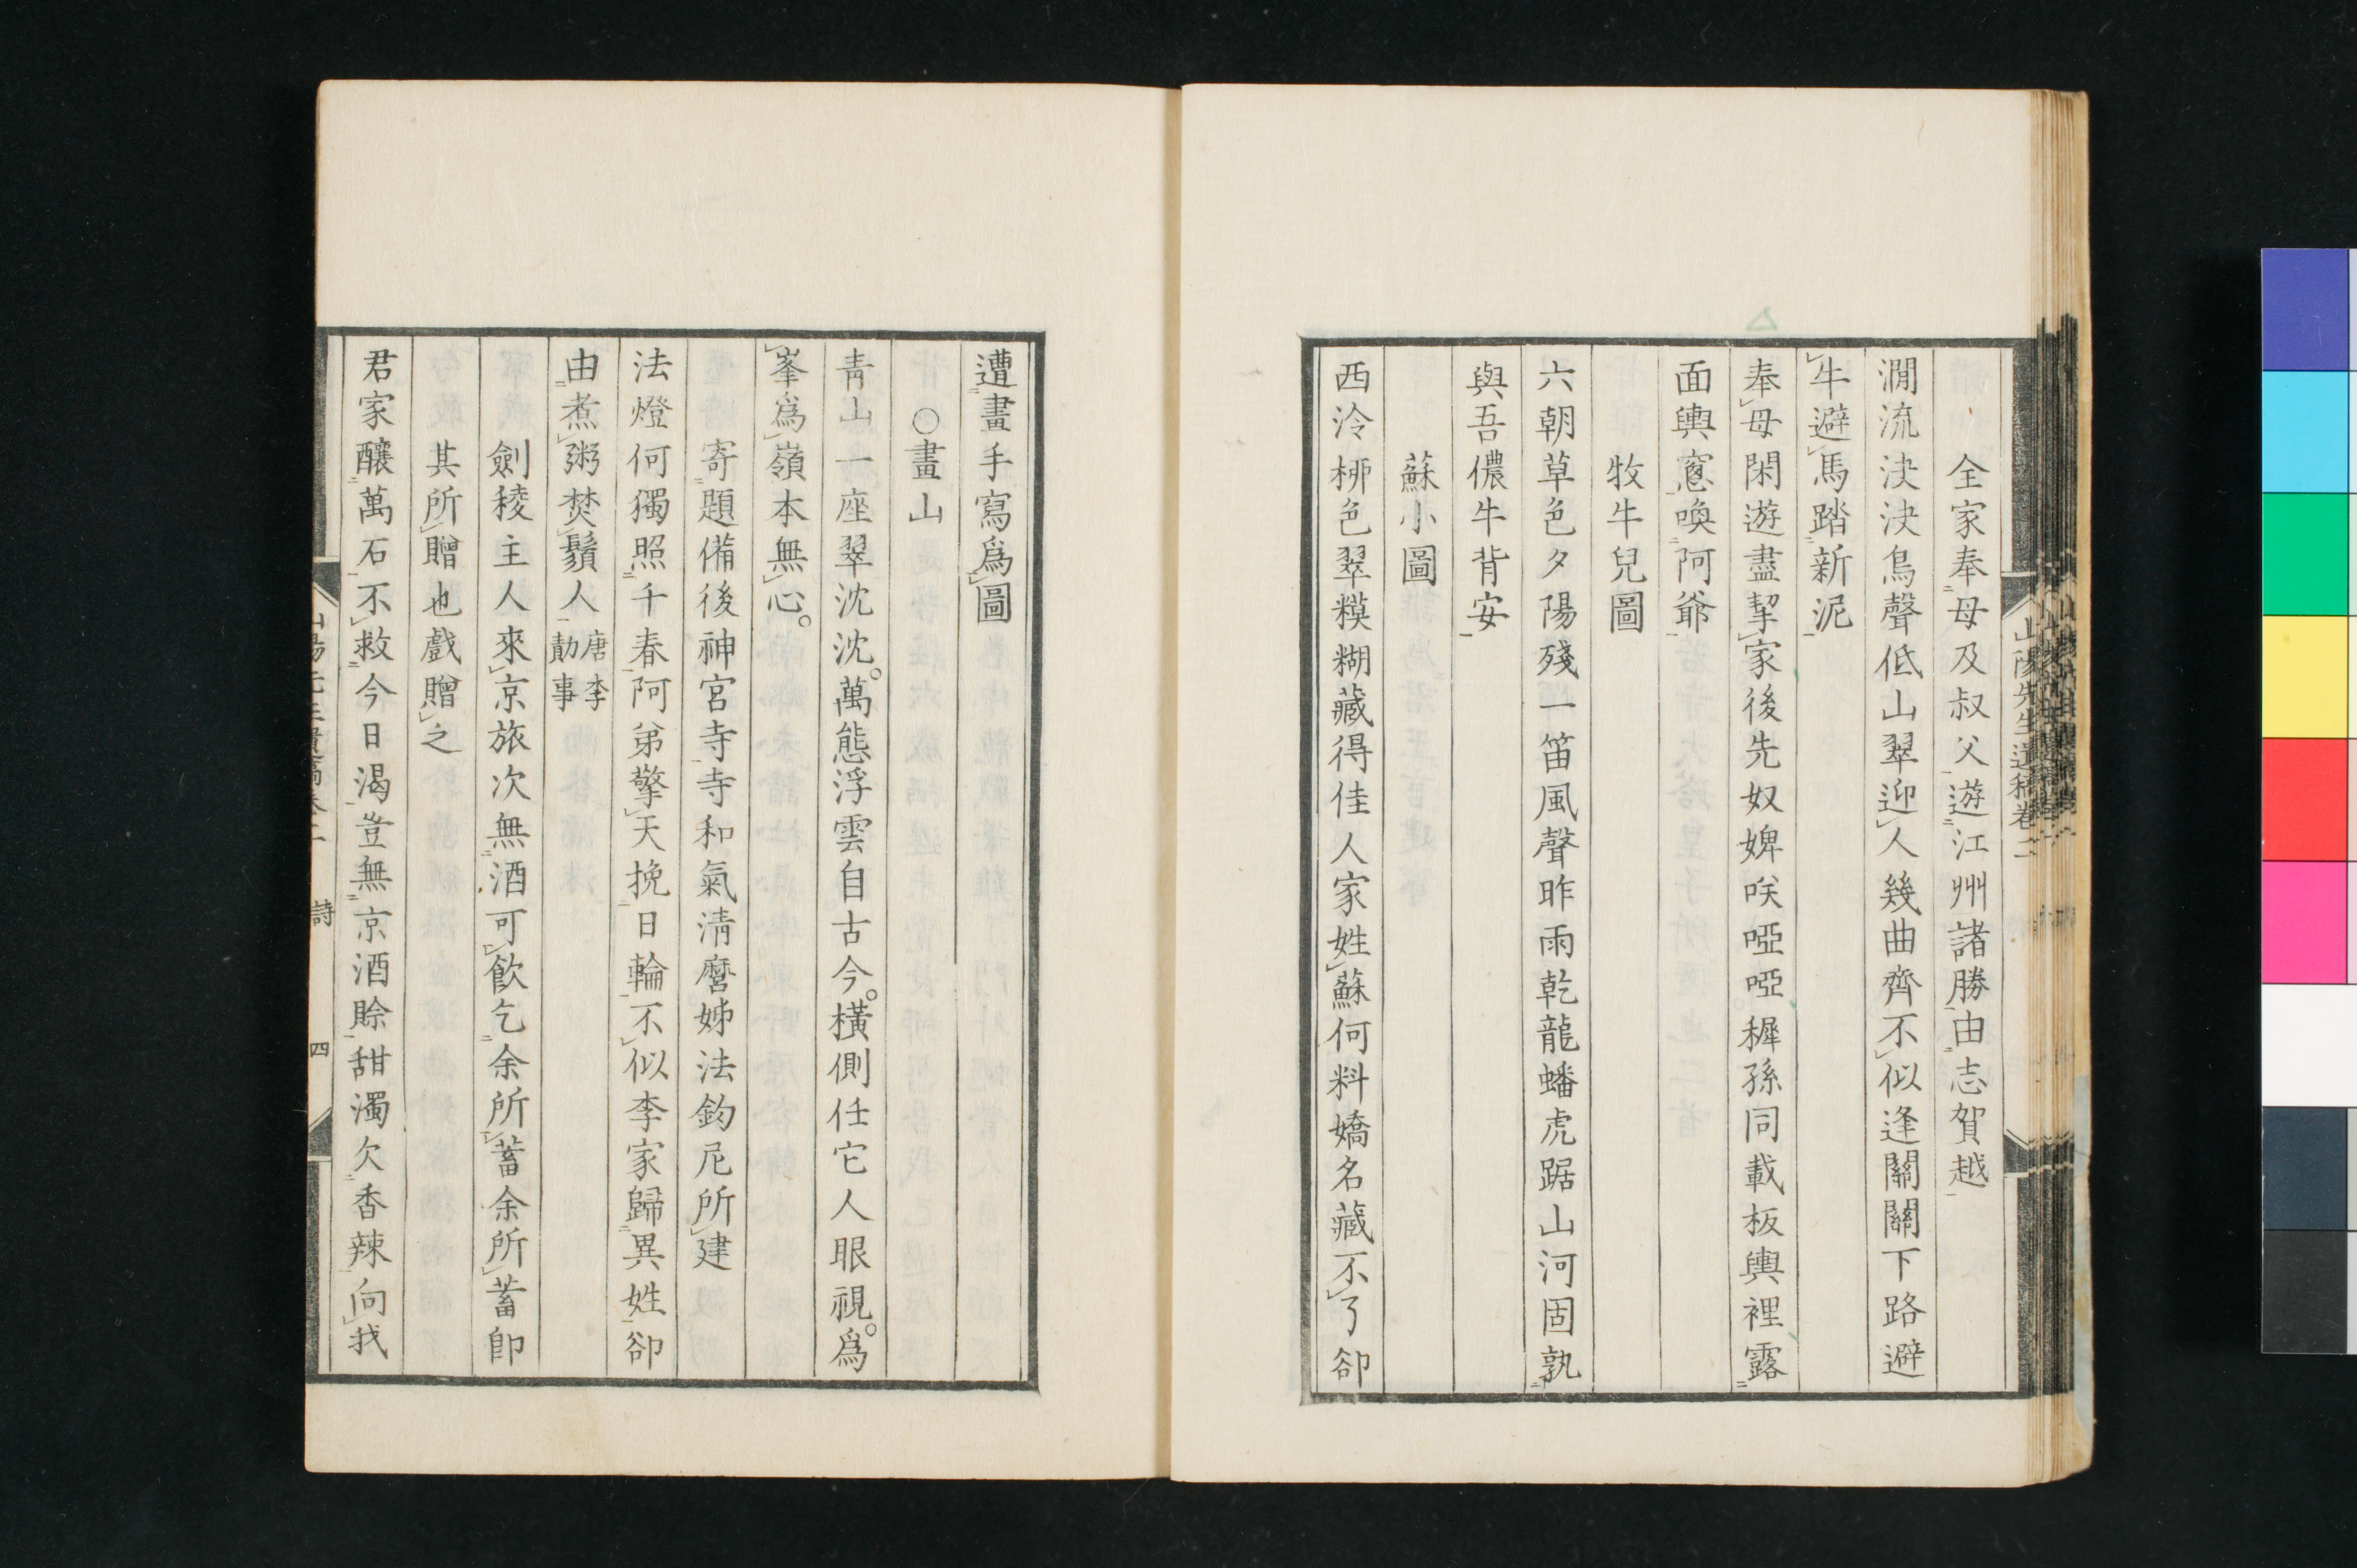 全家奉母及叔父遊江州諸勝由志賀越
澗流決決鳥聲低山翠迎人幾曲齊不似逢關關下路避
牛避馬踏新泥
奉母閑遊盡挈家後先奴婢咲啞啞穉孫同載板輿裡露
面輿窻喚阿爺
牧牛兒圖
六朝草色夕陽殘一笛風聲昨雨乾龍蟠虎踞山河固孰
與吾儂牛背安
蘇小圖
西泠桺色翠糢糊藏得佳人家姓蘇何料嬌名藏不了卻
遭畫手寫爲圖
○畫山
青山一座翠沈沈。萬態浮雲自古今。橫側任它人眼視。爲
峯爲嶺本無心。
寄題備後神宮寺寺和氣淸麿姊法鈞尼所建
法燈何獨照千春阿弟擎天挽日輪不似李家歸異姓卻
由煮粥焚鬚人唐李勣事
劍稜主人來京旅次無酒可飮乞余所蓄余所蓄卽
其所贈也戲贈之
君家釀萬石不救今日渴豈無京酒賒甜濁欠香辣向我
山陽先生遺稿卷二
山陽先生遺稿卷二 詩 四